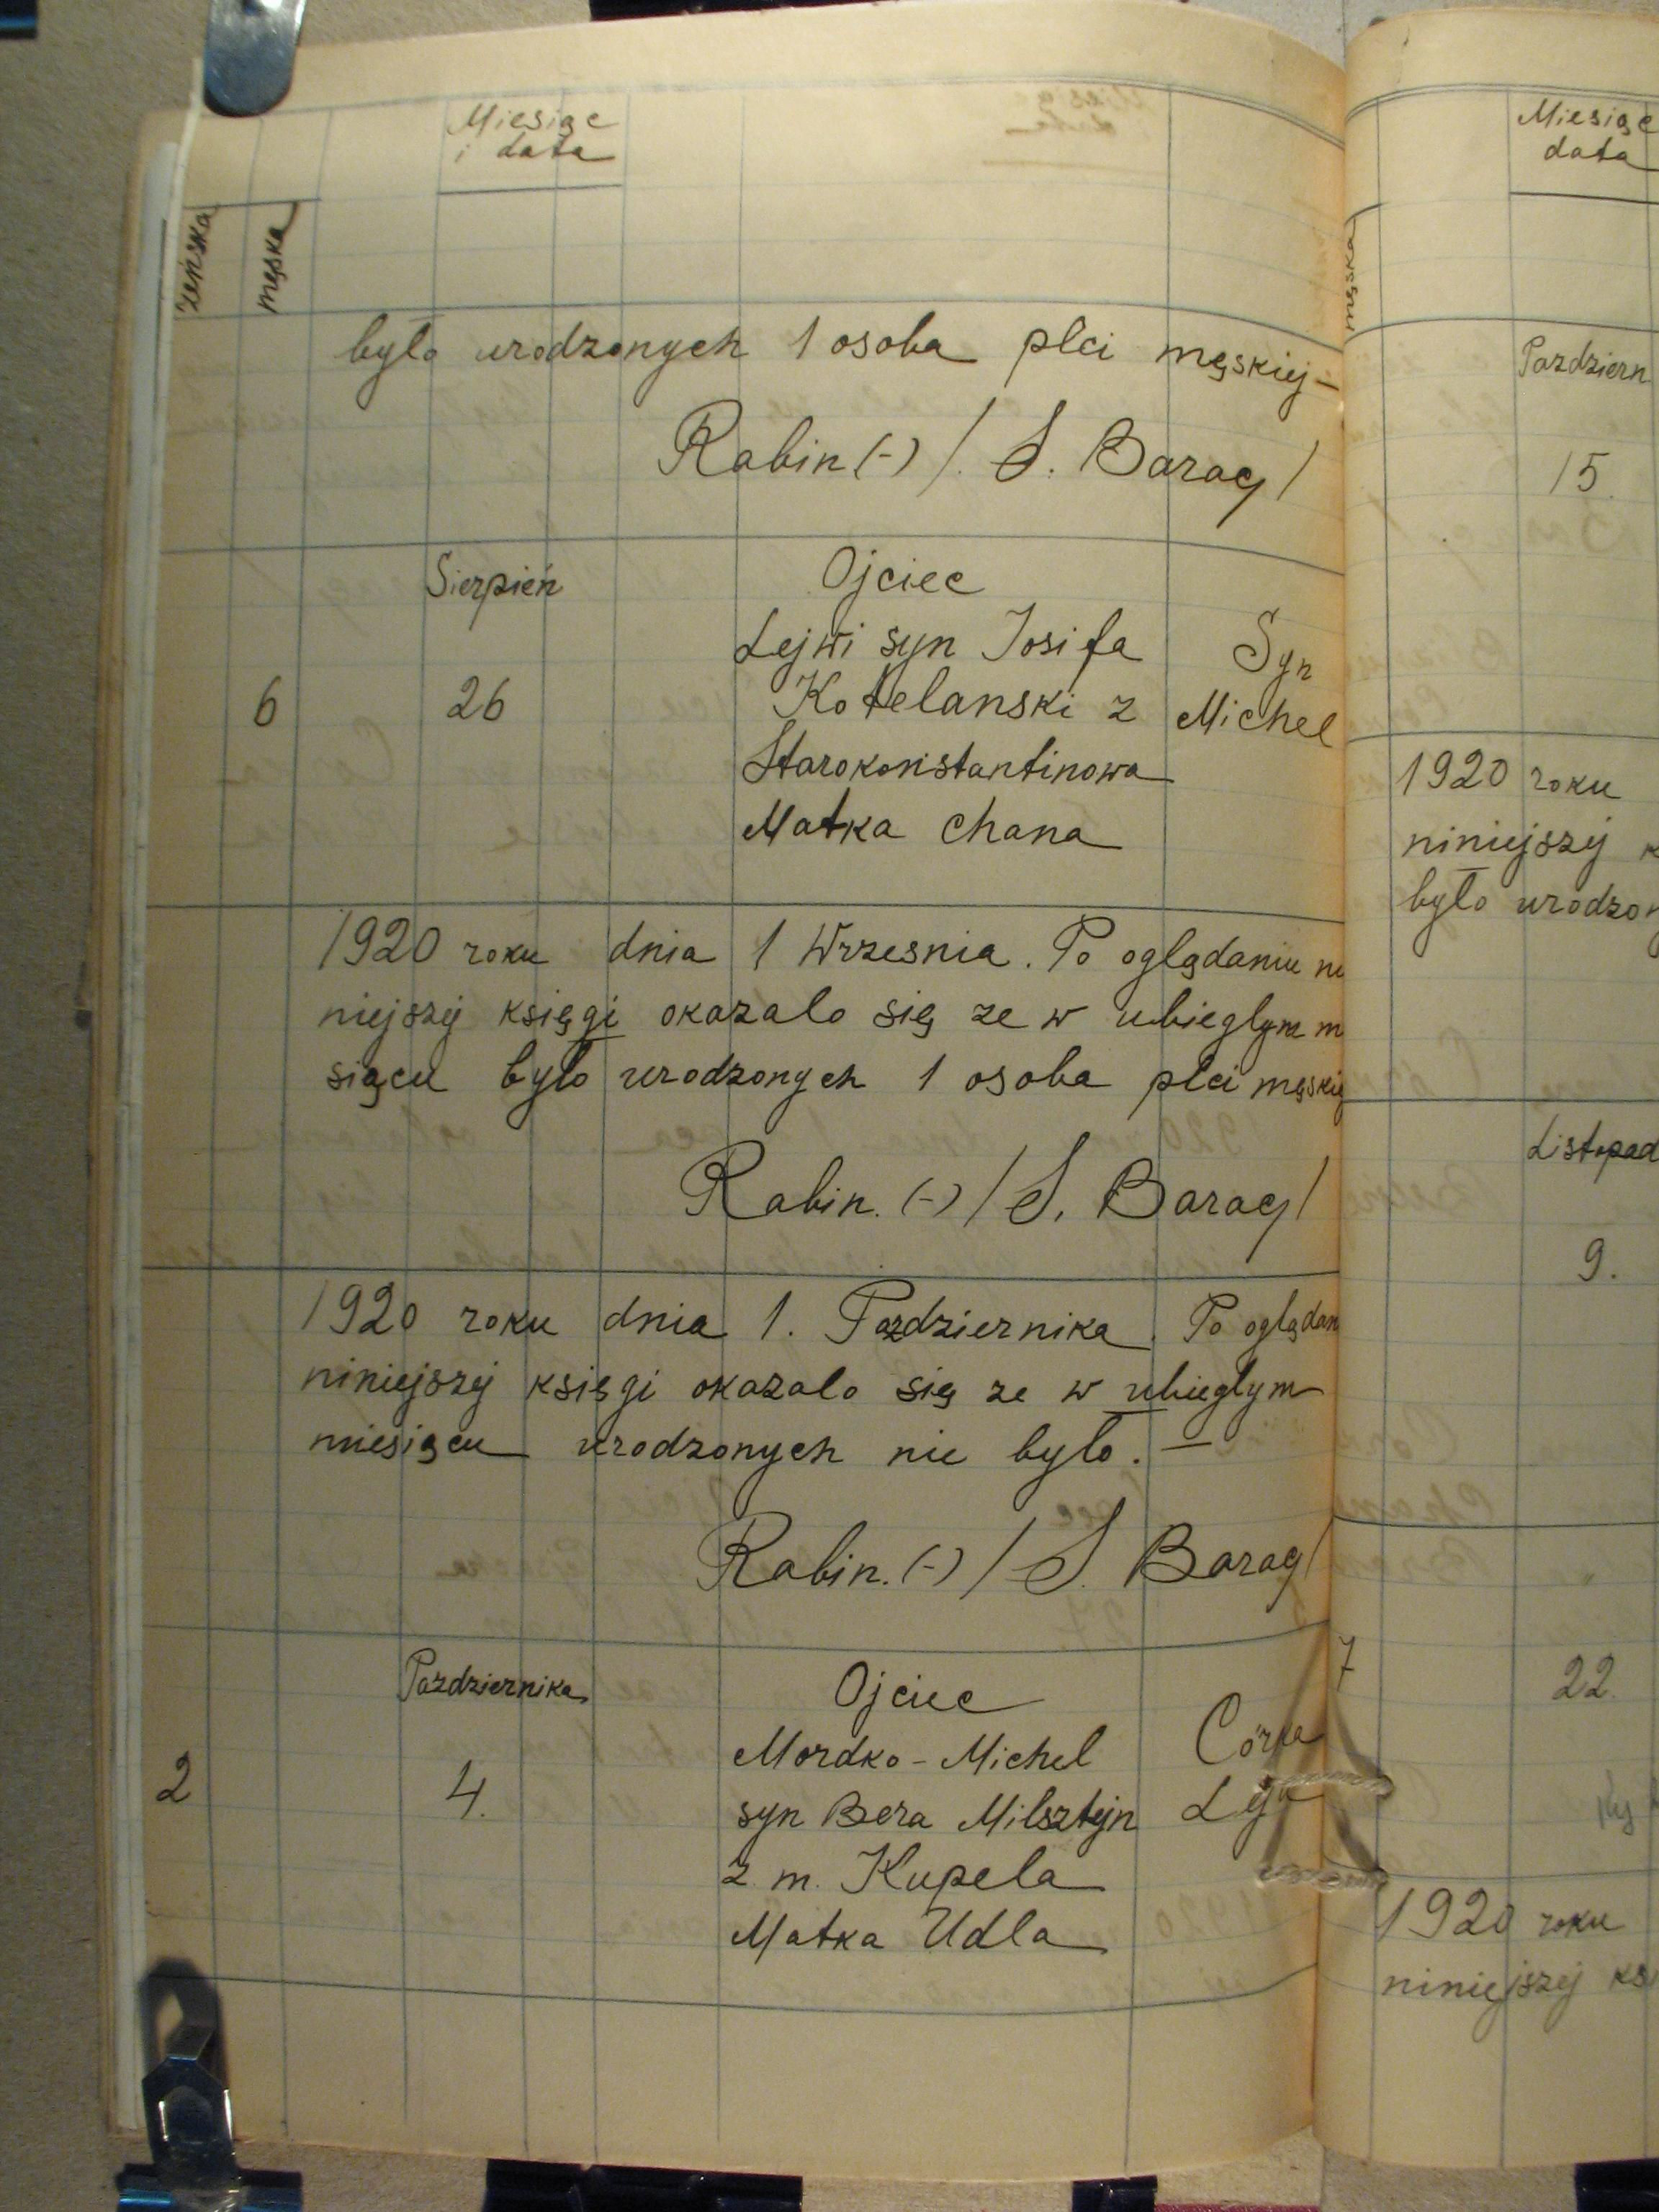 Miesiąc
i data
żeńska
męska
było urodzonych 1 osoba plci męskiej –
Rabin (-) / S. Barag /
Sierpień
Ojciec
Lejwi syn Josifa
Syn
6
26
Kotelanski z
Michel
Starokonstantinowa
Matka Chana
1920 roku dnia 1 Wrzesnia. Po oglądaniu ni
niejszej księgi okazalo się ze w ubieglym m
siącu bylo urodzonych 1 osoba plci męskiej
Rabin. (-) / S. Barag /
1920 roku dnia 1. Pazdziernika. Po oglądan
niniejszej księgi okazalo się ze w ubieglym
miesiącu urodzonych nie bylo. –
Rabin. (-) / S. Barag /
Pazdziernika
Ojciec
Mordko - Michel
Córka
2
4.
syn Bera Milsztejn
z m. Kupela
Matka Udla
Miesiąc
data
męska
Pazdziern
15.
1920 roku
niniejszej k
było urodzon
Listopad
9.
7
22.
1920 roku
niniejszej ks